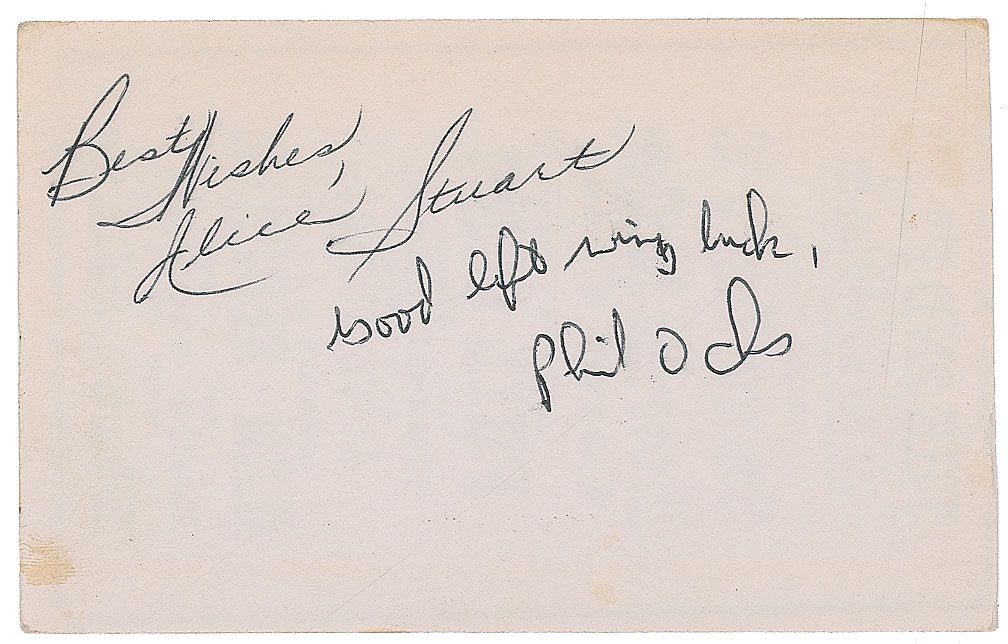 Best Wishes,
Alice Stuart
good left wing luck,
Phil Ochs